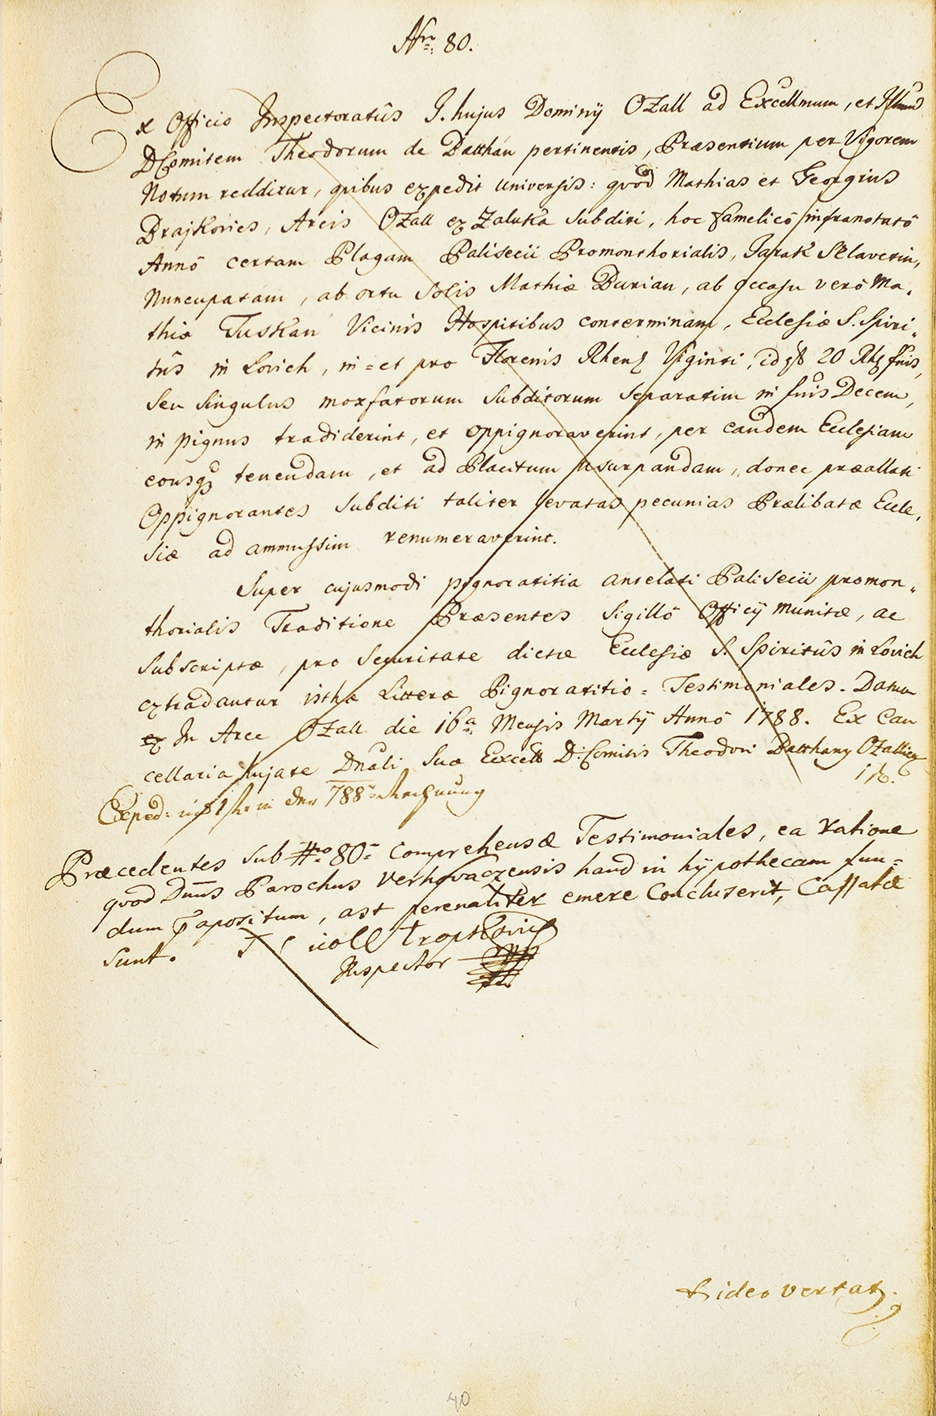 Nr: 80.
Ex Officio Inspectoratûs I. hujus Dominÿ Ozall ad Excellmum, et Illmum
D: Comitem Theodorum de Batthán pertinentis, Præsentium per Vigorem
Notum redditur, quibus expedit universis: quod Mathias et Georgius
Brajkovics, Arcis Ozall ex Zaluka Subditi, hoc famelicô infranotatô
Annô certam Plagam Palisecii Promonthorialis, Jarak Sslavetin,
Nuncupatam, ab ortu Solis Mathiæ Burian, ab occasu verô Ma,
thiæ Tuskan Vicinis Hospitibus conterminam, Ecclesiæ S. Spiri,
tûs in Lovich, in = et pro Florenis Rhens Viginti, id est 20 Rhs fnis,
seu Singulus moxfatorum Subditorum Separatim in fnis Decem,
in pignus tradiderint, et oppignoraverint, per eandem Ecclesiam
eousq tenendam, et ad Placitum usurpandam, donec præallati
Oppignorantes Subditi taliter levatas pecunias Prælibatæ Eccle,
siæ ad ammussim renumeraverint.
Super cujusmodi pignoratitia antelati Palisecii promon,
thorialis Traditione Præsentes Sigillô Officÿ munitæ, ac
Subscriptæ, pro Securitate dictæ Ecclesiæ S. Spiritûs in Lovich
extradantur isthæ Litteræ Pignoratitio = Testimoniales. Datum
ex In Arce Ozall die 16a Mensis Martÿ Annô 1788. Ex Can
cellaria hujate Dnali Suæ Excell D: Comitis Theodori Batthany Ozallien
Exped: in der 788
Præcedentes sub Nro 80 comprehensæ Testimoniales, ea ratione
quod Dnus Parochus Verhovaczensis haud in hÿpothecam fun=
dum appositum, ast perenaliter emere Concluserit, Cassatæ
sunt. Tropkovich
Inspector
Video vertat
40